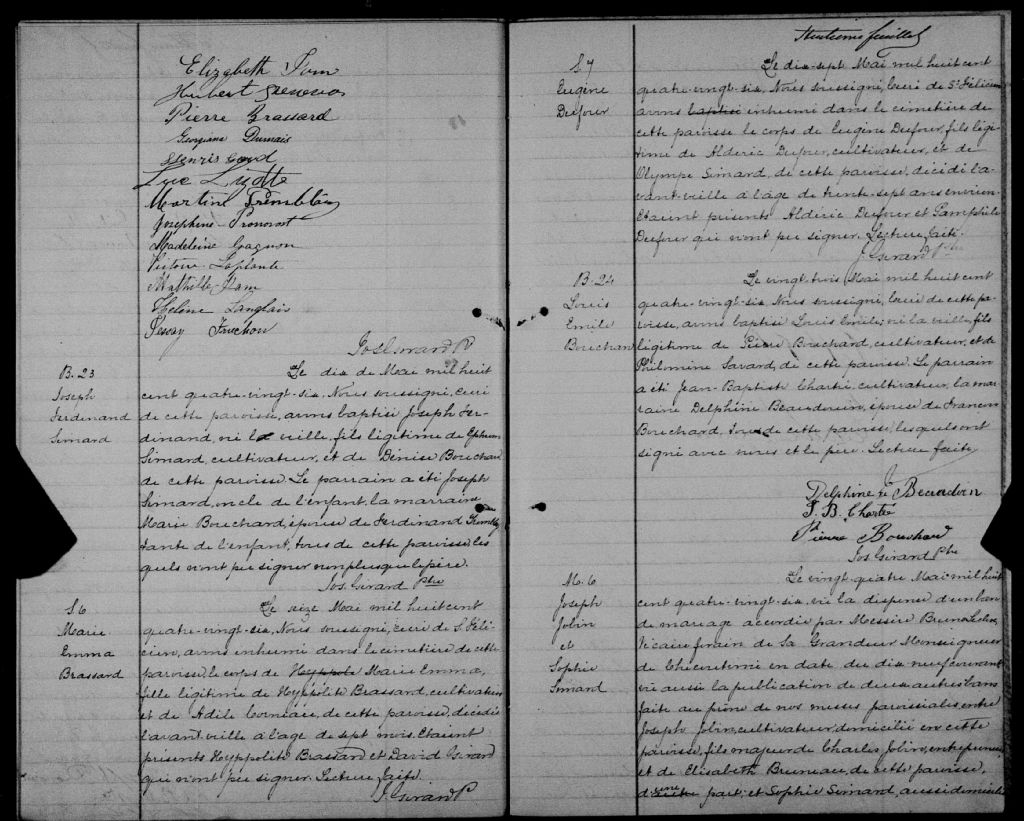 Elizabeth Tam
Hubert
Pierre Brassard
Georgiana Dumais
Henri
Luc
Martine Tremblay
Josephine Pronovost
Madeleine Gagnon
Victoire Laplante
Mathilde Tam
Hélène Langlais
Fruchon
Jos Girard Ptre
B. 23
Joseph
Ferdinand
Simard
Le dix de Mai mil huit
cent quatre-vingt-six, Nous soussigné, curé
de cette paroisse, avons baptisé Joseph Fer-
dinand, né la veille, fils légitime de Ephrem
Simard, cultivateur, et de Denise Bouchard
de cette paroisse. Le parrain a été Joseph
Simard, oncle de l'enfant, la marraine
Marie Bouchard, épouse de Ferdinand Trembly
tante de l'enfant, tous de cette paroisse, les
quels n'ont pu signer non plus que le père.
Jos. Girard Ptre
S6
Marie
Emma
Brassard
Le seize Mai mil huit cent
quatre-vingt-six, Nous soussigné, curé de S. Féli-
cien, avons inhumé dans le cimetière de cette
paroisse, le corps de Hyppole Marie Emma,
fille légitime de Hyppolite Brassard, cultivateur
et de Adile Corneau, de cette paroisse, décédée
l'avant-veille à l'age de sept mois. Etaient
présents Hyppolite Brassard et David Girard
qui n'ont pu signer. Lecture faite.
J. Girard P
feuillet
S7
Eugène
Dufour
Le dix-sept Mai mil huit cent
quatre-vingt-six, Nous soussigné, Curé de St Félicien
avons baptisé inhumé dans le cimetière de
cette paroisse le corps de Eugène Dufour, fils légi-
time de Aldéric Dufour, cultivateur, et de
Olympe Simard, de cette paroisse, décédé l'a-
vant-veille à l'âge de trente-sept ans environ.
Etaient présents Aldéric Dufour et Pamphile
Dufour qui n'ont pu signer. Lecture faite.
J. Girard Ptre
B. 24
Louis
Emile
Bouchard
Le vingt-trois Mai mil huit cent
quatre-vingt-six, Nous soussigné, Curé de cette pa-
roisse, avons baptisé Louis Emile, né la veille, fils
légitime de Pierre Bouchard, cultivateur, et de
Philomène Savard, de cette paroisse. Le parrain
a été Jean-Baptiste Charté, cultivateur, la mar-
raine Delphine Beaudouin, épouse de Francois
Bouchard, tous de cette paroisse, lesquels ont
signé avec nous et le père. Lecture faite
Delphine Beaudoin
J. B. Charté
Pierre Bouchard
Jos Girard Ptre
M. 6
Joseph
Jolin
et
Sophie
Simard
Le vingt-quatre Mai mil huit
cent quatre-vingt-six, vu la dispense d'un ban
de mariage accordée par Messire Bruno Leclerc,
Vicaire forain de Sa Grandeur Monseigneur
de Chicoutimi en date du dix neuf courant
vu aussi la publication de deux autres bans
faite au prône de nos messes paroissiales entre
Joseph Jolin, cultivateur, domicilié en cette
paroisse, fils majeur de Charles Jolin, entrepreneur
et de Elisabeth Bruneau, de cette paroisse,
d'une part; et Sophie Simard, aussi domiciliée